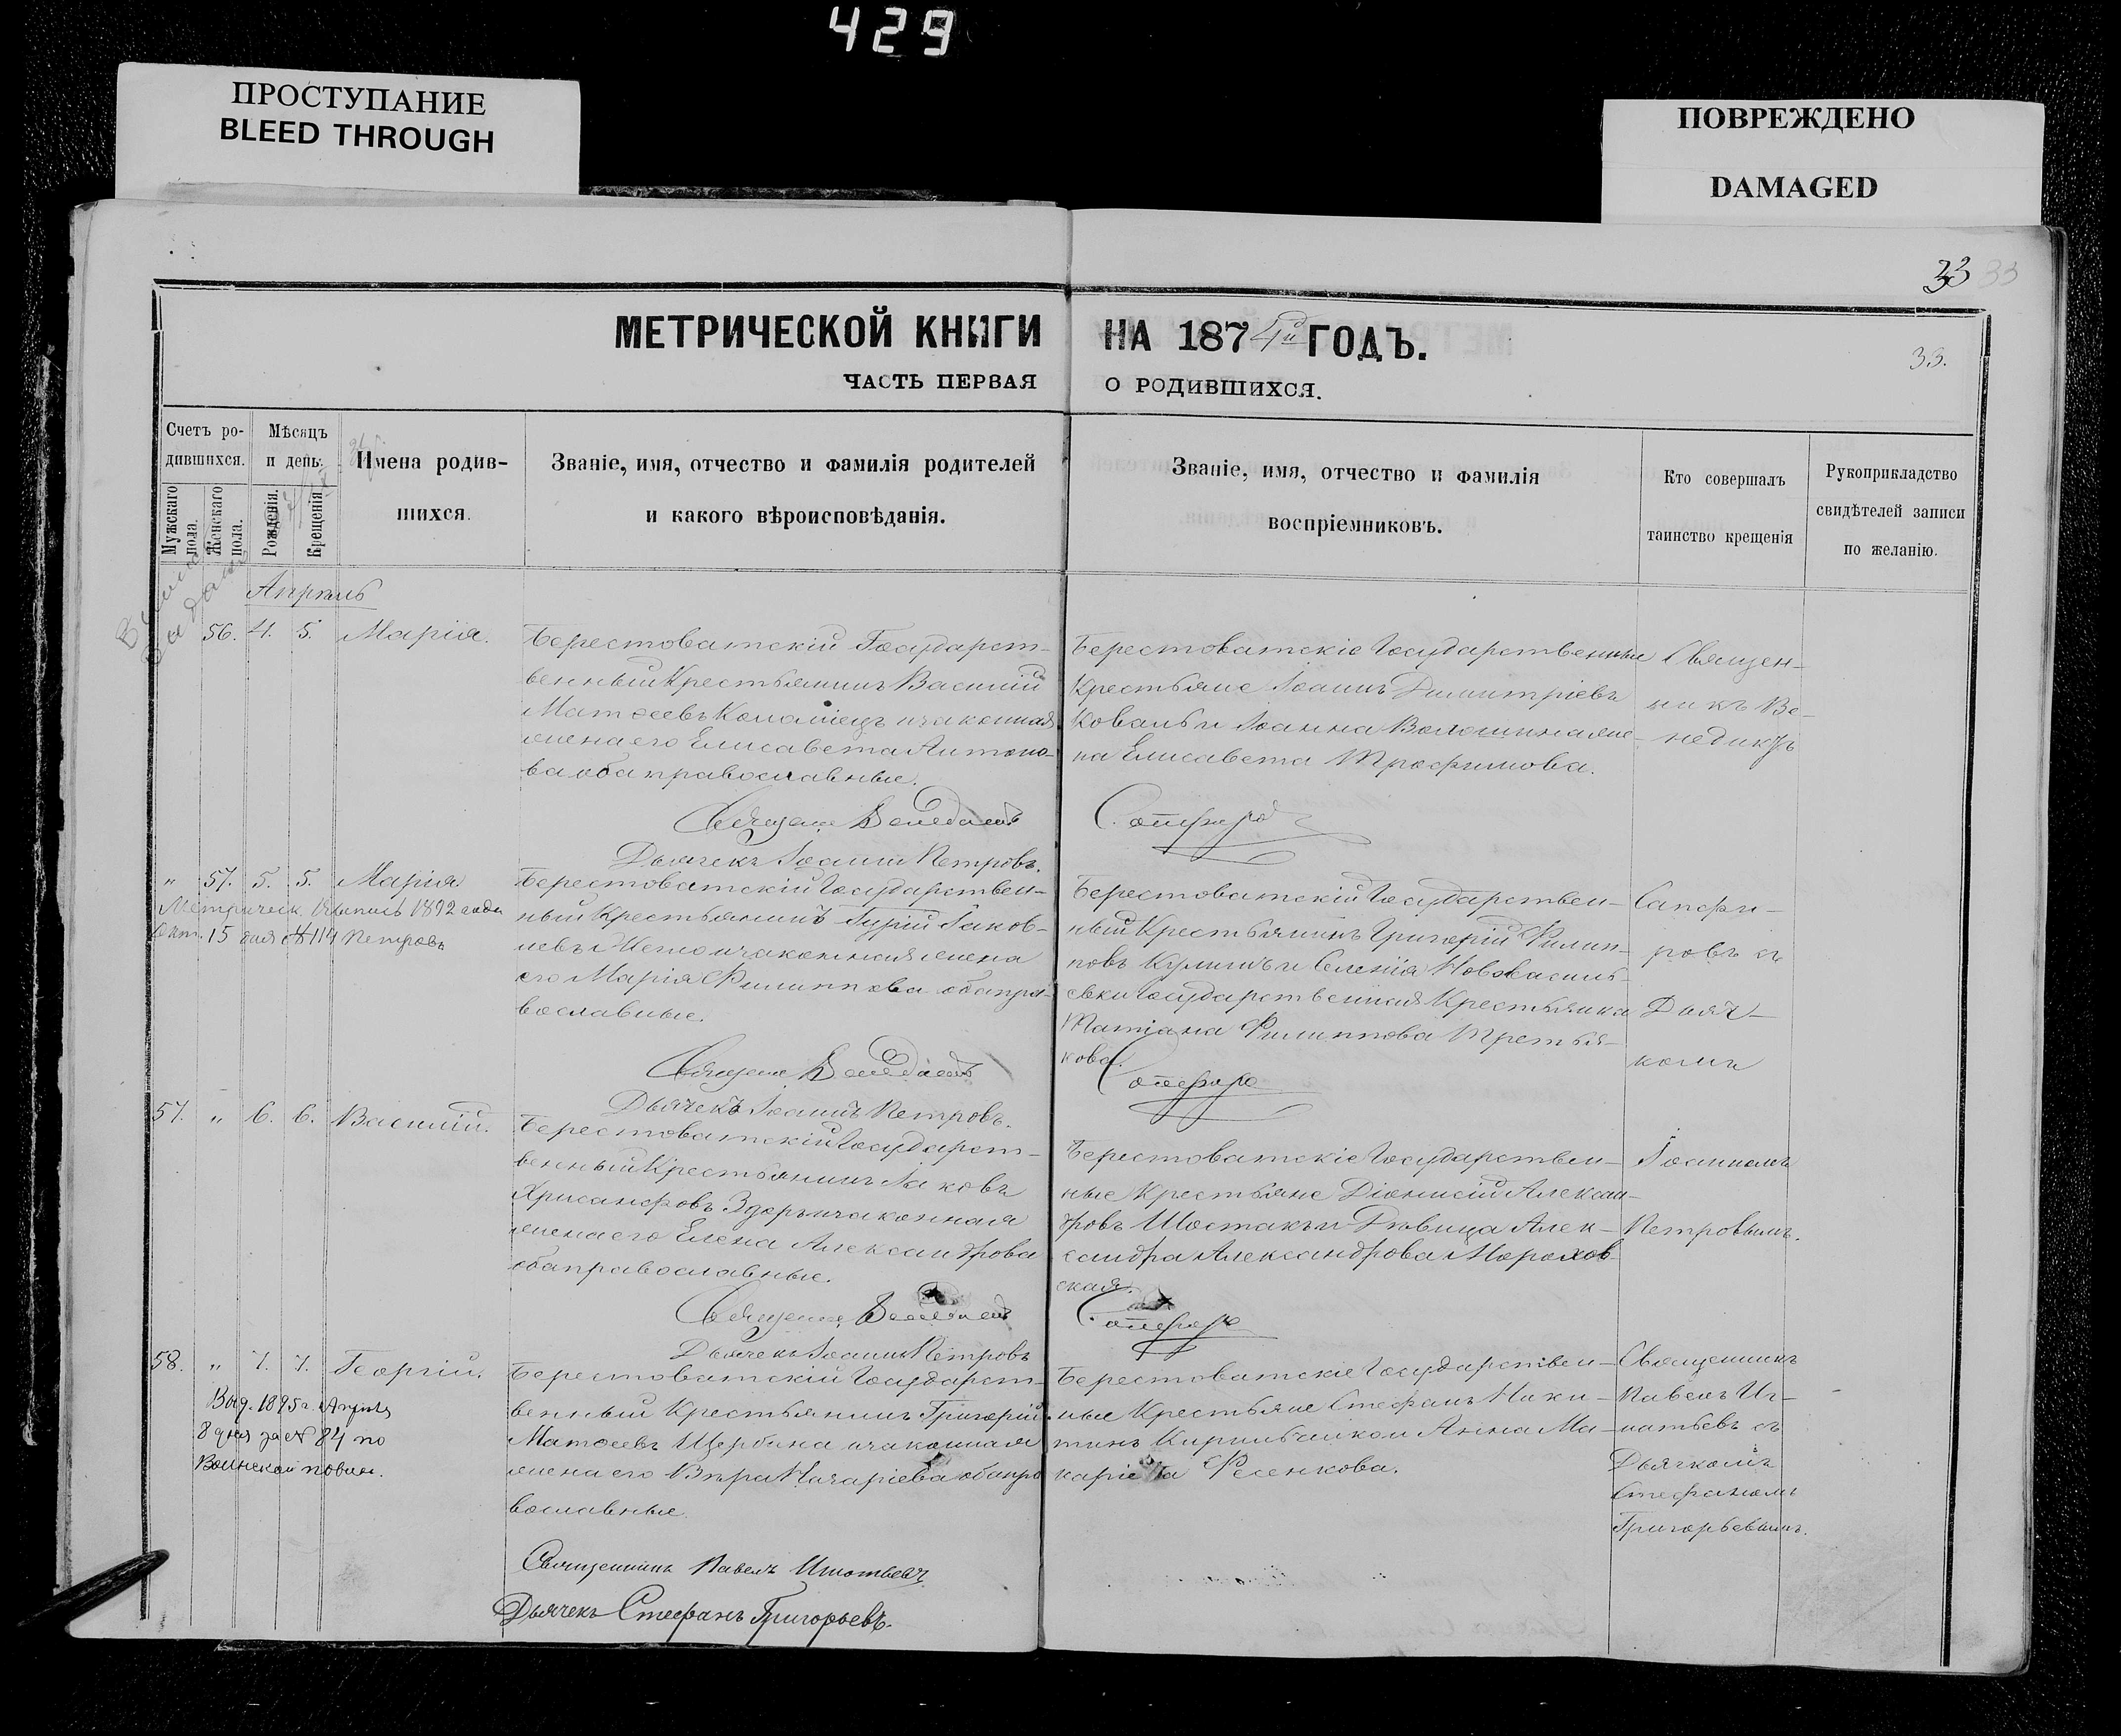 429
ПРОСТУПАНИЕ
BLEED THROUGH
ПОВРЕЖДЕНО
DAMAGED
33 33
МЕТРИЧЕСКОЙ КНИГИ НА 1874й ГОДЪ.
33.
ЧАСТЬ ПЕРВАЯ О РОДИВШИХСЯ.
Счетъ ро-
дившихся.
Мужскаго пола.
Женскаго пола.
Мѣсяцъ
и день.
Рожденія.
Крещенія.
Имена родив-
шихся.
Званіе, имя, отчество и фамилія родителей
и какого вѣроисповѣданія.
Званіе, имя, отчество и фамилія
воспріемниковъ.
Кто совершалъ
таинство крещенія
Рукоприкладство
свидѣтелей записи
по желанію.
Апрѣль
56. 4. 5. Марія.
Берестоватскій Государст-
венный Крестьянинъ Василій
Матѳеевъ Коломіецъ и законная
жена его Елисавета Антоно-
ва оба православные.
Дьячекъ Іоаннъ Петровъ.
Берестоватскіе Государственные
Крестьяне Іоаннъ Димитріевъ
Коваль и Іоанна Волошина же-
на Елисавета Трофимова.
Священ-
никъ Ве-
недиктъ
" 57. 5. 5. Марія
1892 года
Окт. 15 дня № 114 Петровъ
Берестоватскій Государствен-
ный Крестьянинъ Гурій Іаков-
левъ и законная жена
его Марія Филиппова оба пра-
вославные.
Дьячекъ Іоаннъ Петровъ.
Берестоватскій Государствен-
ный Крестьянинъ Григорій Филип-
повъ Кулишъ и Селенія Нововасиль-
евки Государственная Крестьянка
Татіана Филиппова Третья-
кова.
Сапфи-
ровъ съ
Дьяч-
комъ
57. " 6. 6. Василій.
Берестоватскій Государст-
венный Крестьянинъ Іаковъ
Хрисанфовъ Здоръ и законная
жена его Елена Александрова
оба православные.
Дьячекъ Іоаннъ Петровъ
Берестоватскіе Государствен-
ные Крестьяне Діонисій Алексан-
дровъ Шостакъ и Дѣвица Алек-
сандра Александрова Морохов-
ская.
Іоанномъ
Петровымъ.
58. " 7. 7. Георгій.
Выд. 1895 г. Августа
8 дня за № 84 по
Воинской повин.
Берестоватскій Государст-
венный Крестьянинъ Григорій
Матѳеевъ Щербина и законная
жена его Вѣра Назаріева оба пра
вославные.
Священникъ Павелъ Игнатьевъ
Дьячекъ Стефанъ Григорьевъ.
Берестоватскіе Государствен-
ные Крестьяне Стефанъ Ники-
тинъ и Анна Ма-
каріева Фесенкова.
Священникъ
Павелъ Иг-
натьевъ съ
Дьячкомъ
Стефаномъ
Григорьевымъ.